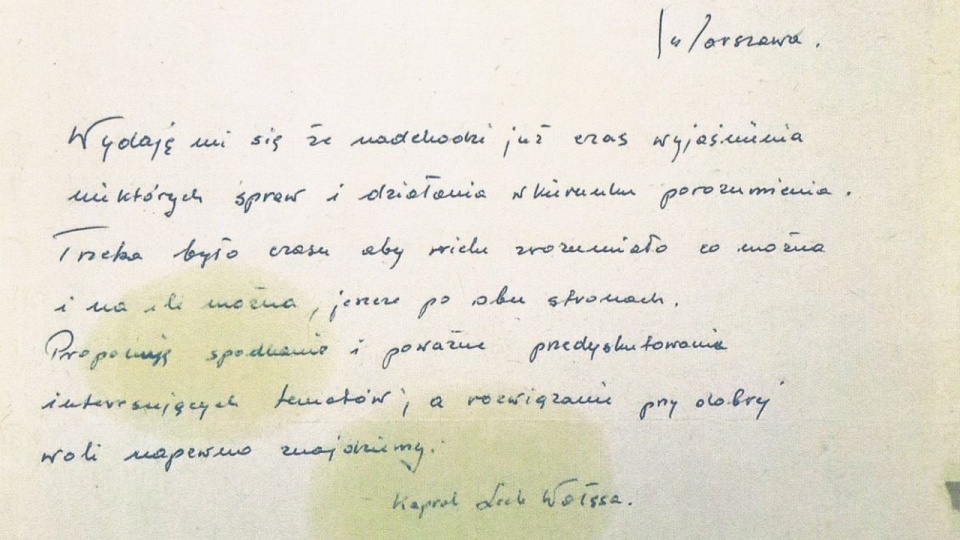 w Warszawa.
Wydaję mi się że nadchodzi już czas wyjaśnienia
niektórych spraw i działania w kierunku porozumienia.
Trzeba było czasu aby wielu zrozumiało co można
i na ile można, jeszcze po obu stronach.
Proponuję spotkanie i poważne przedyskutowanie
interesujących tematów, a rozwiązanie przy dobrej
woli napewno znajdziemy.
Kapral Lech Wałęsa.